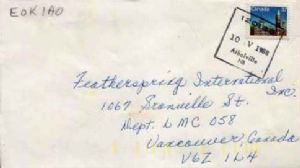 E0K 1A0
Canada
10 V 1988
Atholville
NB
Featherspring International
Inc.
1067 Granville St.
Dept. LMC 058
Vancouver, Canada
V6Z 1L4